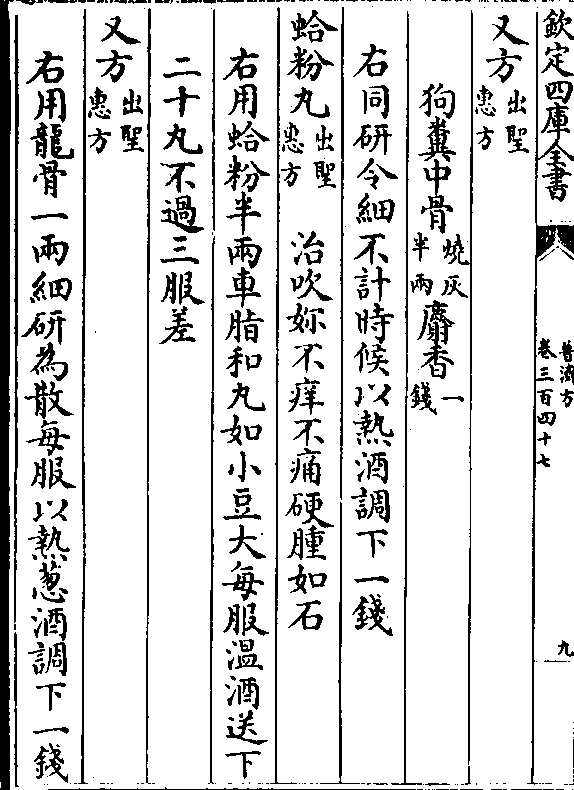 欽定四庫全書
普濟方
卷三百四十七
九
又方出聖惠方
狗糞中骨燒灰半兩麝香一錢
右同研令細不計時候以熱酒調下一錢
蛤粉丸出聖惠方 治吹妳不痒不痛硬腫如石
右用蛤粉半兩車脂和丸如小豆大每服溫酒送下
二十丸不過三服差
又方出聖惠方
右用龍骨一兩細研為散每服以熱葱酒調下一錢